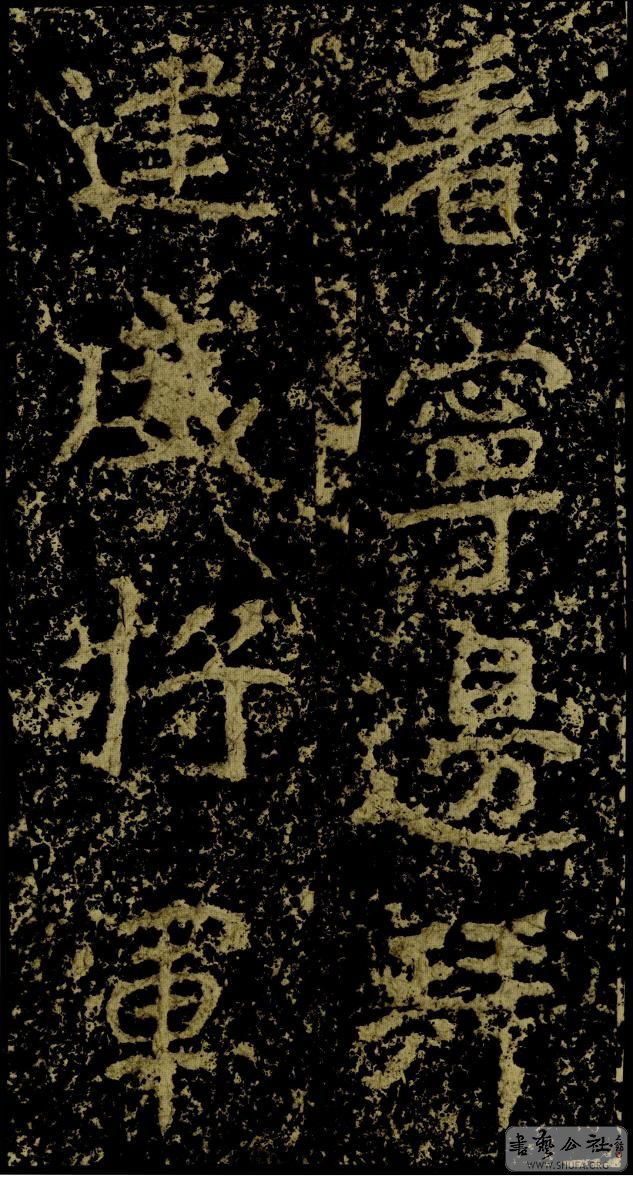 著寧邊拜
建威將軍
書藝公社
WWW.SHUFA.ORG